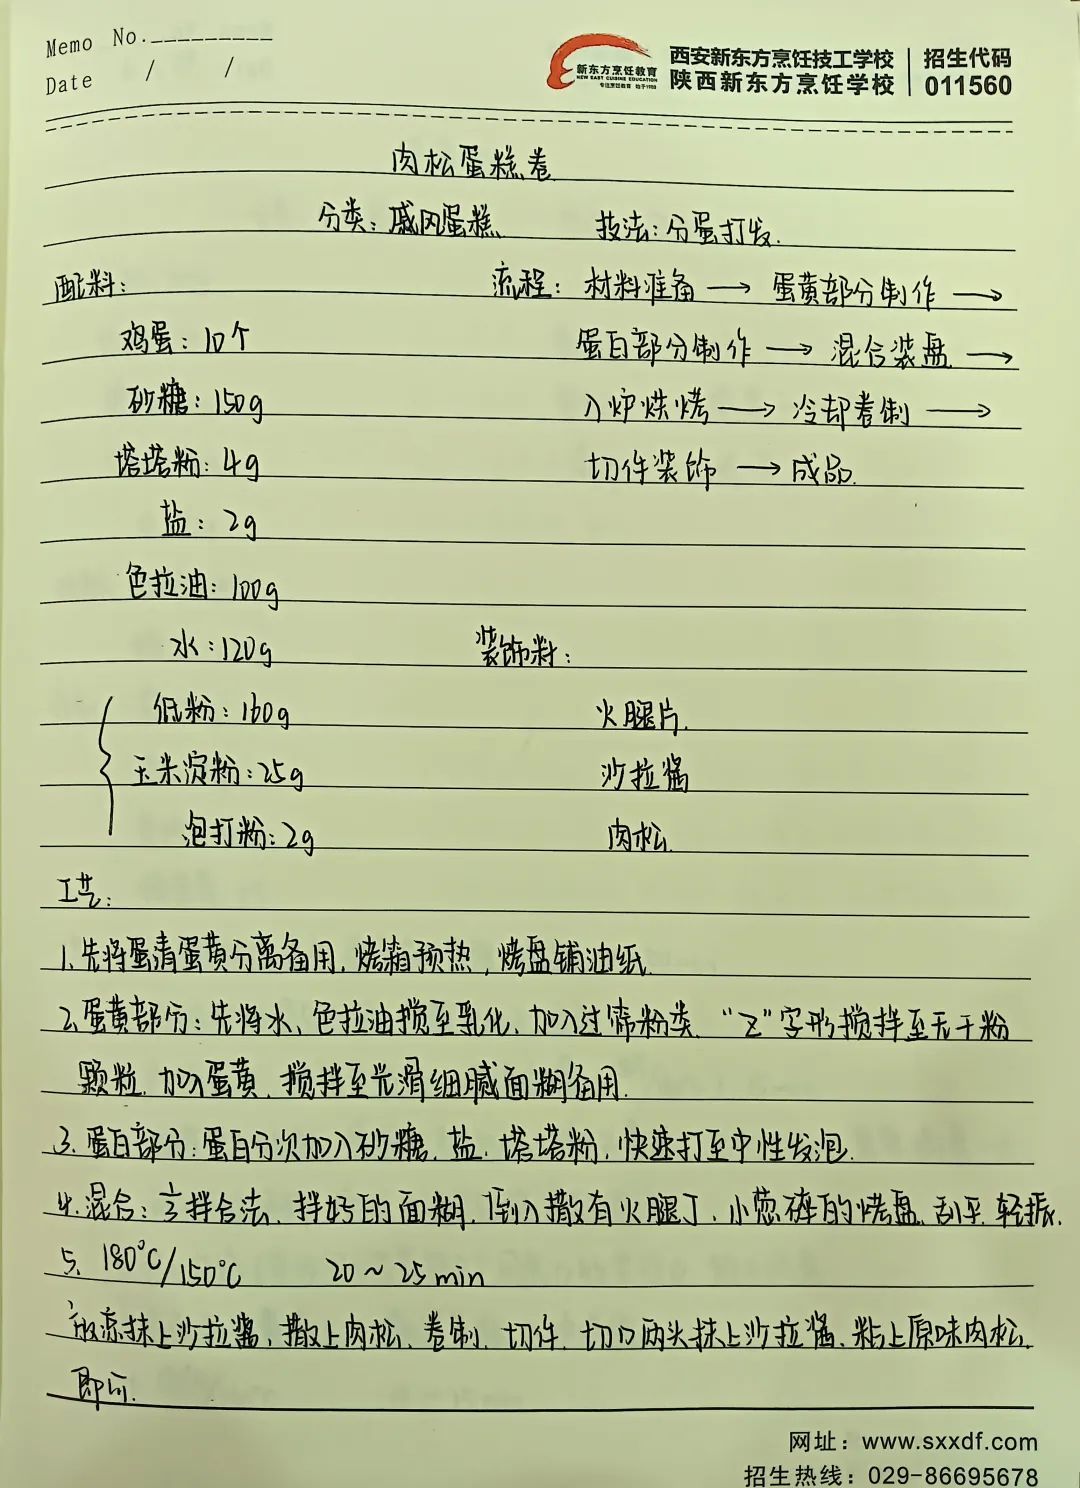 Memo No.
Date / /
新东方烹饪教育
NEW EAST CUISINE EDUCATION
专注烹饪教育 始于1988
西安新东方烹饪技工学校
陕西新东方烹饪学校
招生代码
011560
肉松蛋糕卷
分类:戚风蛋糕 技法:分蛋打发.
配料: 流程: 材料准备 → 蛋黄部分制作 →
鸡蛋:10个 蛋白部分制作 → 混合装盘 →
砂糖:150g 入炉烘烤 → 冷却卷制 →
塔塔粉:4g 切件装饰 → 成品.
盐:2g
色拉油:100g
水:120g 装饰料:
低粉:160g 火腿片.
玉米淀粉:25g 沙拉酱
泡打粉:2g 肉松.
工艺:
1.先将蛋清蛋黄分离备用,烤箱预热,烤盘铺油纸.
2.蛋黄部分:先将水、色拉油搅至乳化,加入过筛粉类 “Z”字形搅拌至无干粉
颗粒,加入蛋黄,搅拌至光滑细腻面糊备用.
3.蛋白部分:蛋白分次加入砂糖、盐、塔塔粉,快速打至中性发泡.
4.混合:三拌合法,拌好的面糊,倒入撒有火腿丁、小葱碎的烤盘,刮平,轻振.
5. 180℃/150℃ 20~25min
放凉抹上沙拉酱,撒上肉松,卷制,切件,切口两头抹上沙拉酱、粘上原味肉松,
即可.
网址:www.sxxdf.com
招生热线:029-86695678